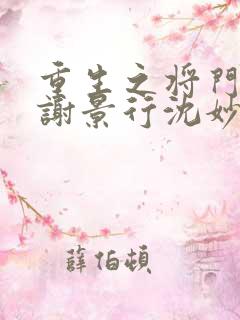 重生之将門
謝景行沈妙
薛伯頓